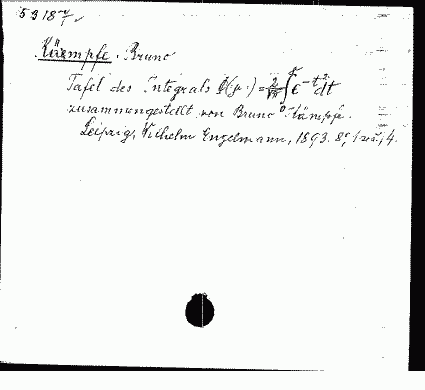 Kämpfe, Bruno
Tafel des Integrals Φ(γ) = 2/√π ∫ e^-t² dt
zusammengestellt von Bruno Kämpfe.
Leipzig, Wilhelm Engelmann, 1893. 8°, 4.